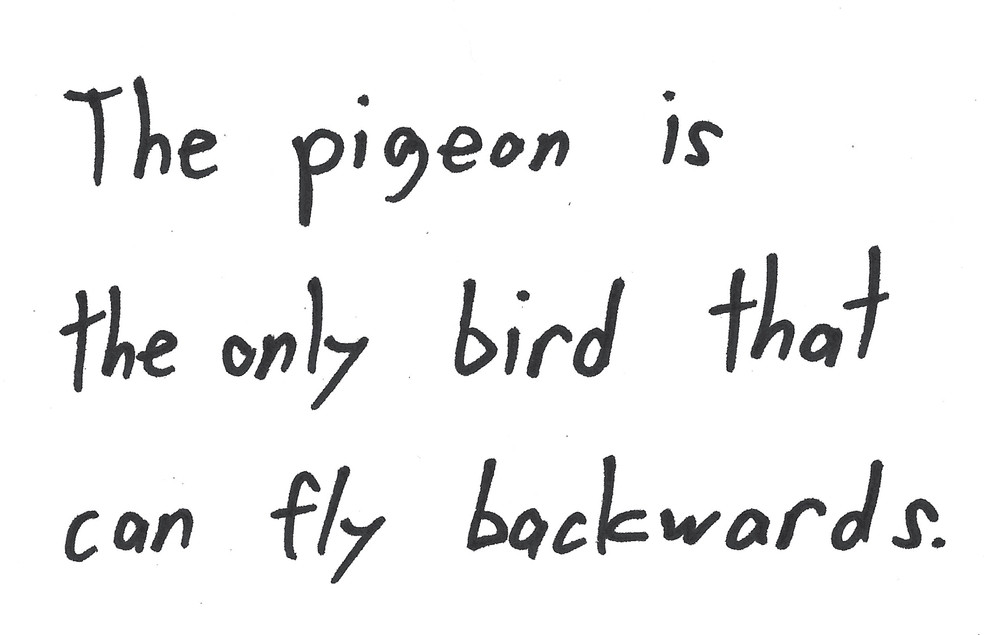 The pigeon is
the only bird that
can fly backwards.